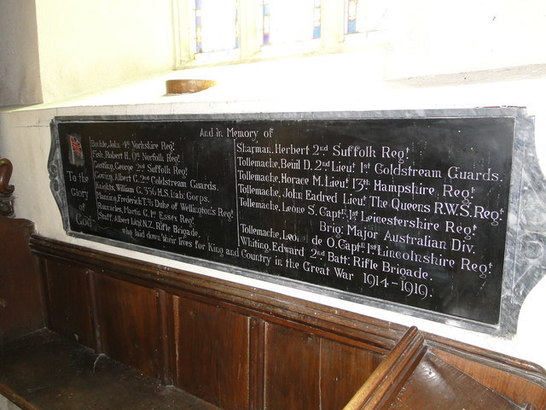 And in Memory of
To the
Glory
of
God
John, 4th Yorkshire Regt.
Fisk, Robert H. 0th Norfolk Regt.
George, 2nd Suffolk Regt.
Albert G. 2nd Coldstream Guards.
William G. 356 H.S. Lab: Corps.
Manning, Frederick T. 7th Duke of Wellington's Regt.
Martin G. 1st Essex Regt.
Stuff, Albert Lay, N.Z. Rifle Brigade.
Sharman, Herbert 2nd Suffolk Regt.
Tollemache, Bevil D. 2nd Lieut. 1st Coldstream Guards.
Tollemache, Horace M. Lieut. 13th Hampshire Regt.
Tollemache, John Eadred Lieut. The Queens R.W.S. Regt.
Tollemache, Leone S. Capt. 1st Leicestershire Regt.
Brig: Major Australian Div.
Tollemache, de O. Capt. 1st Lincolnshire Regt.
Whiting, Edward 2nd Batt: Rifle Brigade.
who laid down their lives for King and Country in the Great War 1914-1919.